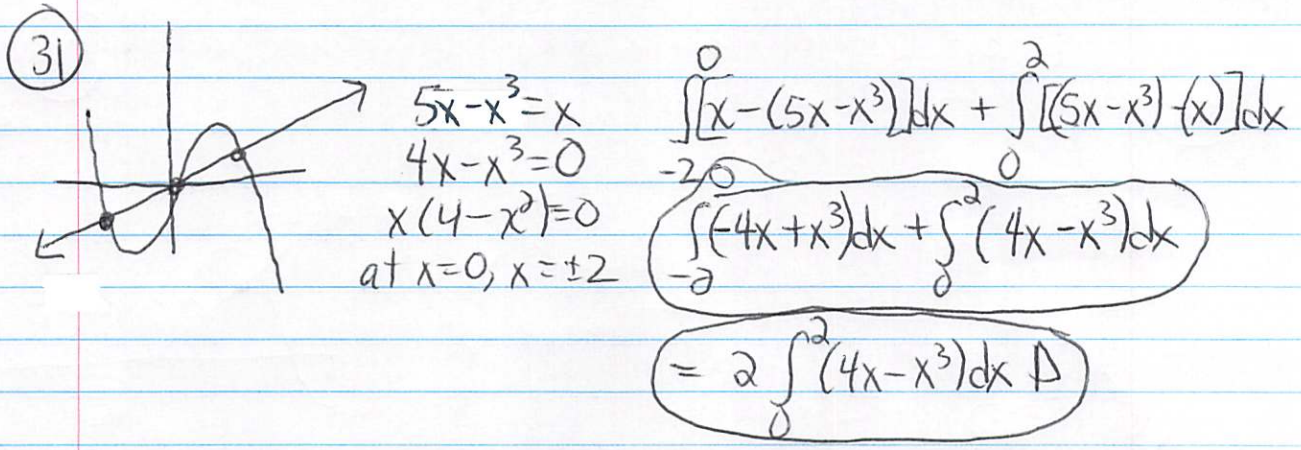 31
5x-x³=x
4x-x³=0
x(4-x²)=0
at x=0, x=±2
∫₋₂⁰[x-(5x-x³)]dx + ∫₀²[(5x-x³)-(x)]dx
∫₋₂⁰(-4x+x³)dx + ∫₀²(4x-x³)dx
= 2∫₀²(4x-x³)dx D